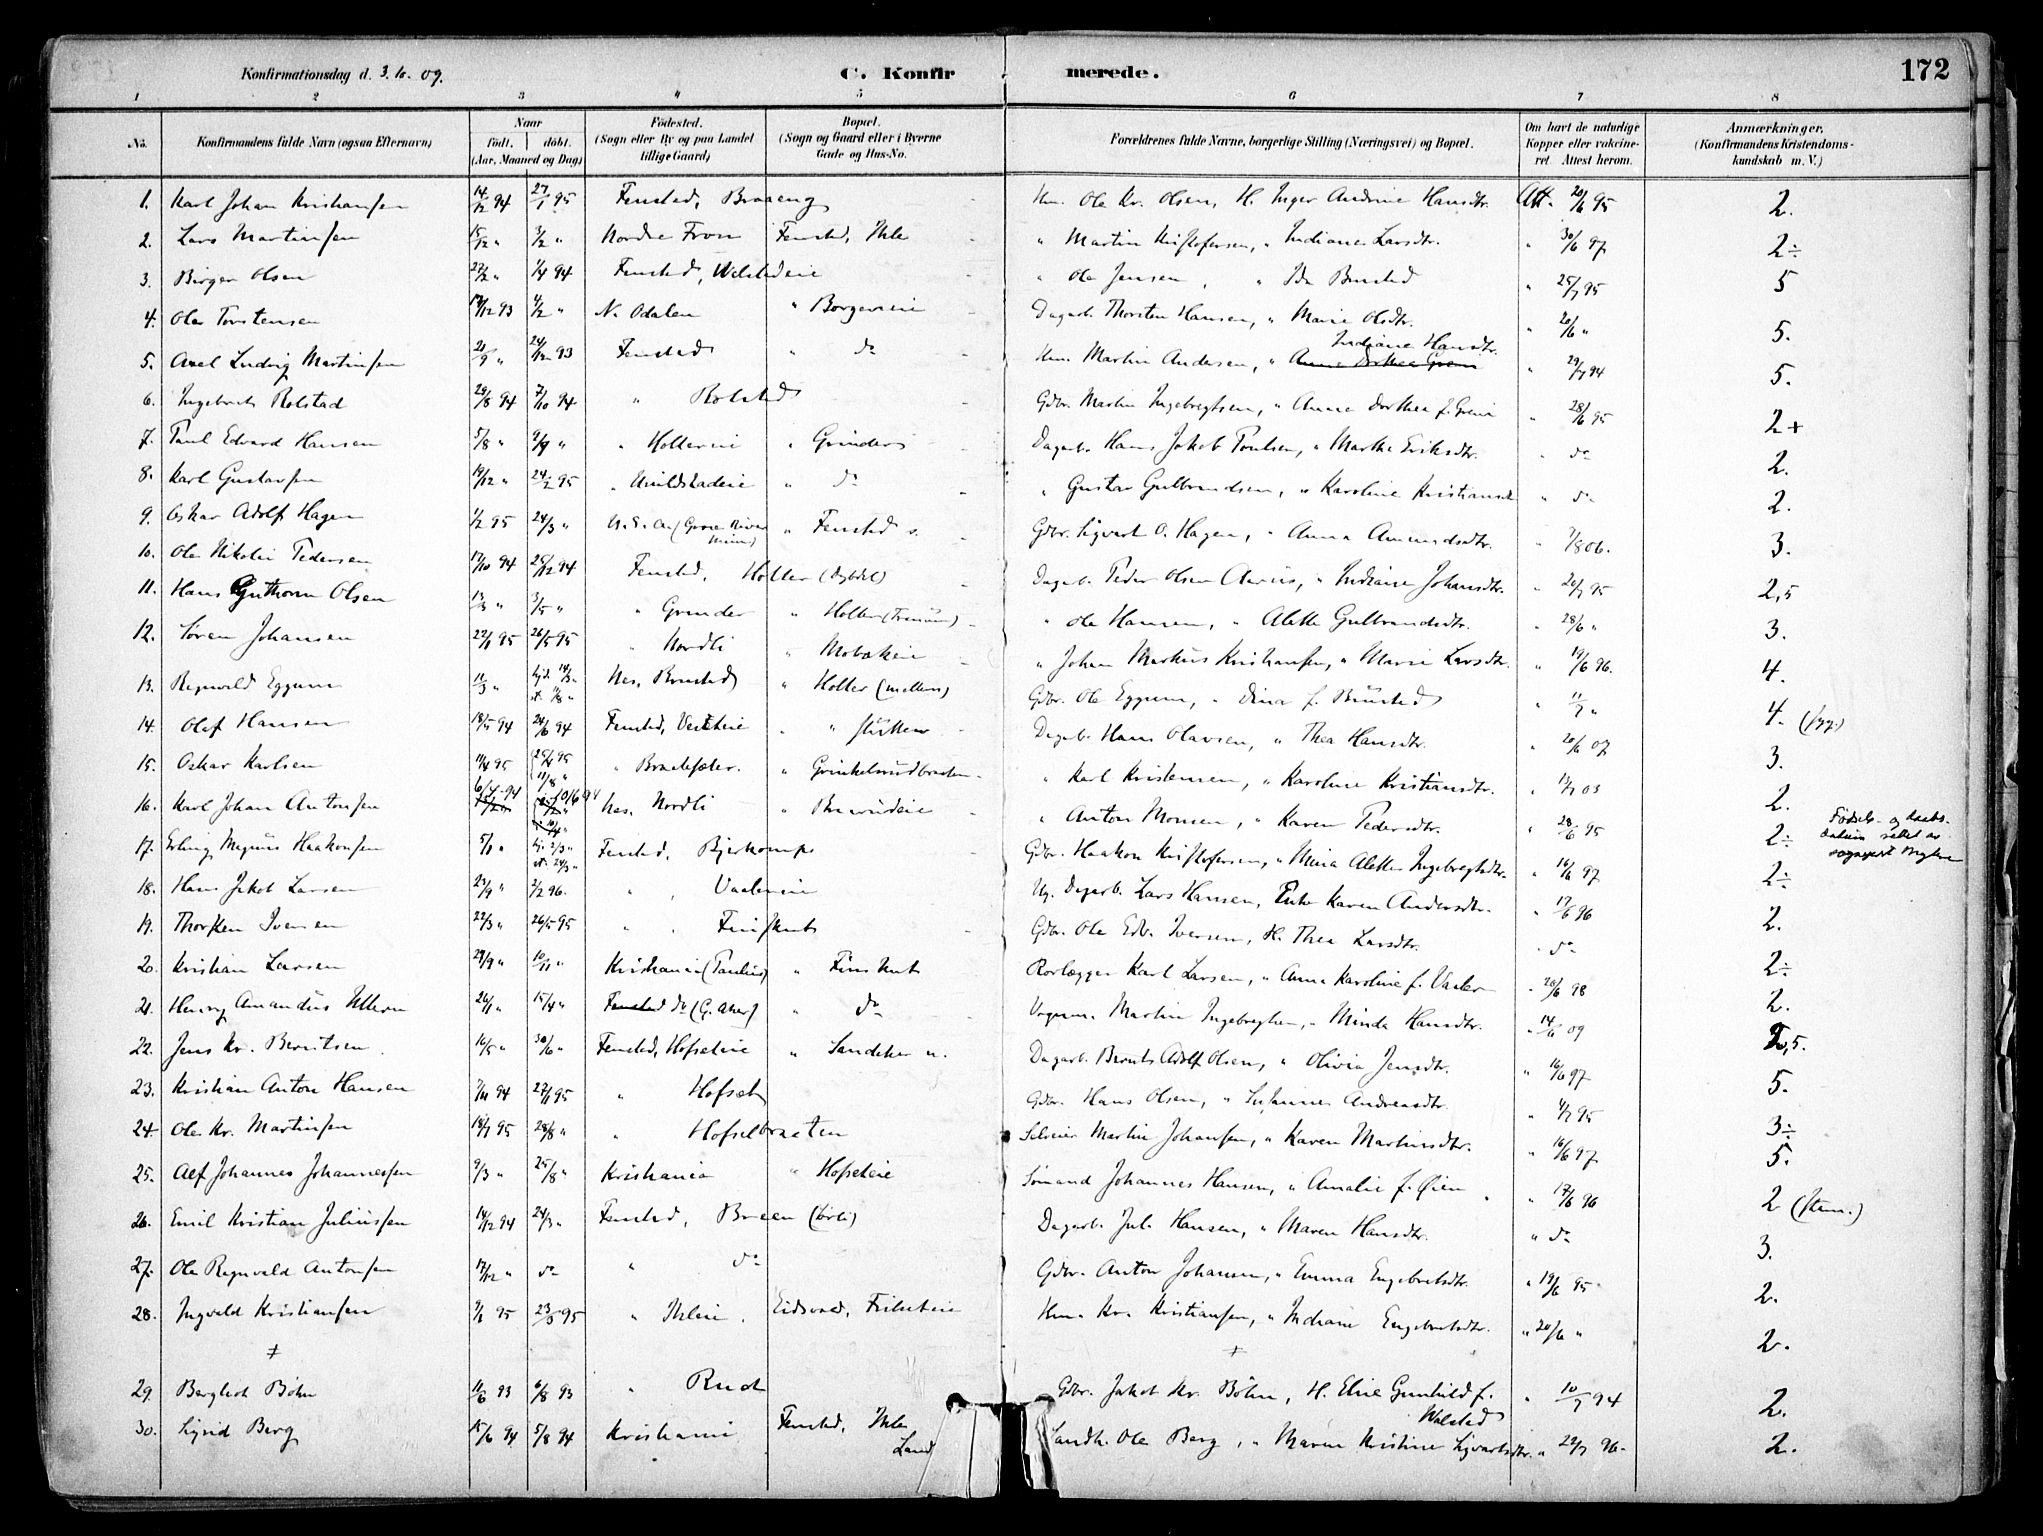 Konfirmationsdag d. 3.10.09.
C. Konfir merede.
172
1 2 3 4 5 6 7 8
No. Konfirmandens fulde Navn (ogsaa Efternavn) Naar født. døbt. (Aar, Maaned og Dag) Fødested. (Sogn eller By og paa Landet tillige Gaard) Bopæl. (Sogn og Gaard eller i Byerne Gade og Hus-No. Forældrenes fulde Navne, borgerlige Stilling (Næringsvei) og Bopæl. Om havt de naturlige Kopper eller vakcineret. Attest herom. Anmærkninger. (Konfirmandens Kristendomskundskab m. V.)
1. Karl Johan Kristiansen 14/12 94 27/1 95 Fensted, Braaeng Hm. Ole Kr. Olsen, H. Inger Andrine Hansdtr. Att. 20/6 95 2.
2. Lars Martinsen 15/12 " 3/2 " Nordre Fron Fensted, Ihle " Martin Kristofersen, " Indiane Larsdtr. " 30/6 97 2÷
3. Birger Olsen 27/2 " 1/4 94 Fensted, " Ole Jensen, " Ida Brusted " 25/7 95 5
4. Ole Torstensen 17/12 93 4/2 " N. Odalen " Borgereie Dagarb. Thorsten Hansen, " Marie Olsdtr. " 20/6 " 5.
5. Axel Ludvig Martinsen 21/9 " 24/12 93 Fensted " do Hm. Martin Andersen, " Indiane Hansdtr. " 29/7 94 5.
6. Ingebret Rolstad 29/8 94 7/10 94 " Rolsted Gdbr. Martin Ingebregtsen, " Anna Dorthea f. Greni " 28/6 95 2+
7. Paul Edvard Hansen 5/8 " 9/9 " " Hollereie " Grinder Dagarb. Hans Jakob Poulsen, " Marthe Eriksdtr. " do 2.
8. Karl Gustavsen 19/12 " 24/2 95 " " do " Gustav Gulbrandsen, " Karoline Kristiansd " do 2.
9. Oskar Adolf Hagen 1/2 95 24/3 " " Fensted s. Gdbr. Sigvart O. Hagen, " Anna Amundsdtr. " 7/8 06. 3.
10. Ole Nikolai Pedersen 17/10 94 25/12 94 Fensted, Holter Dagarb. Peder Olsen " Indiane Johansdtr. " 20/7 95 2,5
11. Hans Guthorm Olsen 13/3 " 3/5 " " Grinder " Holter " Ole Hansen, " Alette Gulbrandsdtr. " 28/6 " 3.
12. Søren Johansen 22/1 95 26/5 95 " Nordli " Mobækeie " Johan Markus Kristiansen, " Marie Larsdtr. " 19/6 96. 4.
13. Regnvald Eggum 11/3 " Nes, Brusted " Holter (mellem) Gdbr. Ole Eggum, " Dina f. Brusted " 11/7 " 4. (syg.)
14. Olaf Hansen 18/5 94 24/6 94 Fensted, " Dagarb. Hans Olavsen, " Thea Hansdtr. " 20/6 07 3.
15. Oskar Karlsen 11/4 95 25/4 95 11/8 " " Braatesæter. " Grinkelsrudbraaten " Karl Kristensen, " Karoline Kristiansdtr. " 17/7 03 2.
16. Karl Johan Antonsen 6/4 94 10/6 94 Nes, Nordli " " Anton Monsen, " Karen Pedersdtr. " 28/6 95 2÷ Fødsels- og daabsdatum rettet av
17. Erling Magnus Haakonsen 5/1 " hj. 2/3 " st. 24/3 " Fensted, Bjerkomp Gdbr. Haakon Kristofersen, " Mina Alette Ingebregtsdtr. " 16/6 97 2÷
18. Hans Jakob Larsen 23/9 " 2/2 96. " " Vaalereie Ug. Dagarb. Lars Hansen, Enke Karen Andersdtr. " 17/6 96 2.
19. Thorsten Iversen 22/3 " 26/5 95 " " Finstad Gdbr. Ole Edv. Iversen, H. Thea Larsdtr. " do 2÷
20. Kristian Larsen 29/9 " 10/11 " Kristiania (Paulus) " Rørlægger Karl Larsen, " Anna Karoline f. Vaaler " 20/6 98 2.
21. Henry Amandus 26/1 " 15/4 " Fensted do (G. Aker) " do Vognm. Martin Ingebregtsen, " Minda Hansdtr. " 14/6 09 2,5.
22. Jens Kr. Berntsen. 16/5 " 30/6 " Fensted, Hofseteie " Sandaker n. Dagarb. Bernt Adolf Olsen, " Olivia Jensdtr. " 16/6 97 5.
23. Kristian Anton Hansen 7/11 94 27/1 95 " Hofset Gdbr. Hans Olsen, " Susanne Andreasdtr. " 4/7 95 3÷
24. Ole Kr. Martinsen 18/7 95 28/8 " " Hofsetbraaten Selveier Martin Johansen, " Karen Martinsdtr. " 16/6 97 5.
25. Alf Johannes Johannessen 9/3 " 25/8 " Kristiania " Hofseteie Sømand Johannes Hansen, " Amalie f. Øien " 17/6 96 2 (stem.)
26. Emil Kristian Juliussen 14/12 94 24/3 " Fensted, Braaen Dagarb. Jul. Hansen, " Maren Hansdtr. " do 3.
27. Ole Regnvald Antonsen 17/12 " do " do Gdbr. Anton Johansen, " Emma Engebretsdtr. " 19/6 95 2.
28. Ingvald Kristiansen 9/1 95 23/5 95 " Ihleie. Eidsvold, Hm. Kr. Kristiansen, " Indiane Engebretsdtr. " 20/6 " 2.
29. Bergliot Bøhn 11/6 93 6/8 93 " Rud Gdbr. Jakob Kr. Bøhn, H. Elise Gunhild f. Wolstad " 10/7 94 2.
30. Sigrid Berg 15/6 94 5/8 94 Kristiania Fensted, Ihle Land Landh. Ole Berg, " Maren Kristine Sigvartsdtr. " 22/7 96. 2.